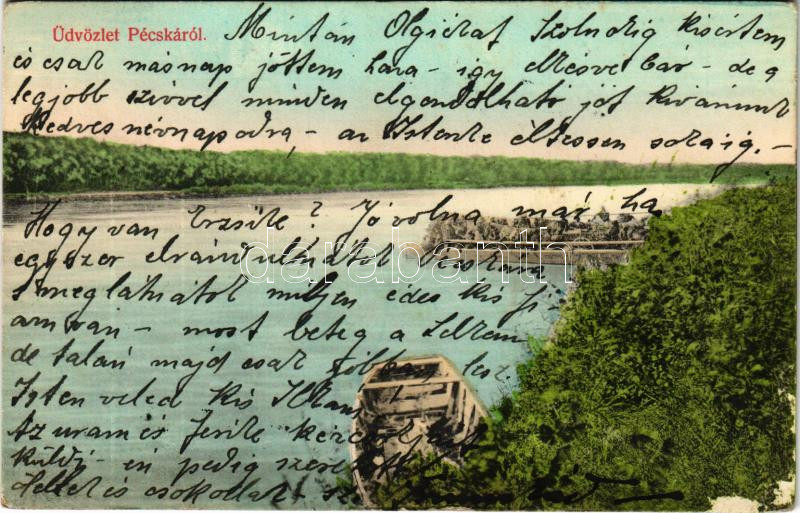 Üdvözlet Pécskáról.
Miután Olgiékat Szolnokig kisértem
és csak másnap jöttem haza – így elkésve bár – de a
legjobb szívvel minden elgondolható jót kivánunk
Kedves névnapodra – az Istenke éltessen soká ig. –
Hogy van Erzsike? Jó volna már ha
egyszer elrándulnátok Pécskára
s meglátnátok milyen édes kis fi
am van – most beteg a
de talán majd csak jobban lesz.
Isten veled kis
Az uram és Ferike kézcsókját
küldi – én pedig szeretettel
ölellek és csókollak
darabanth